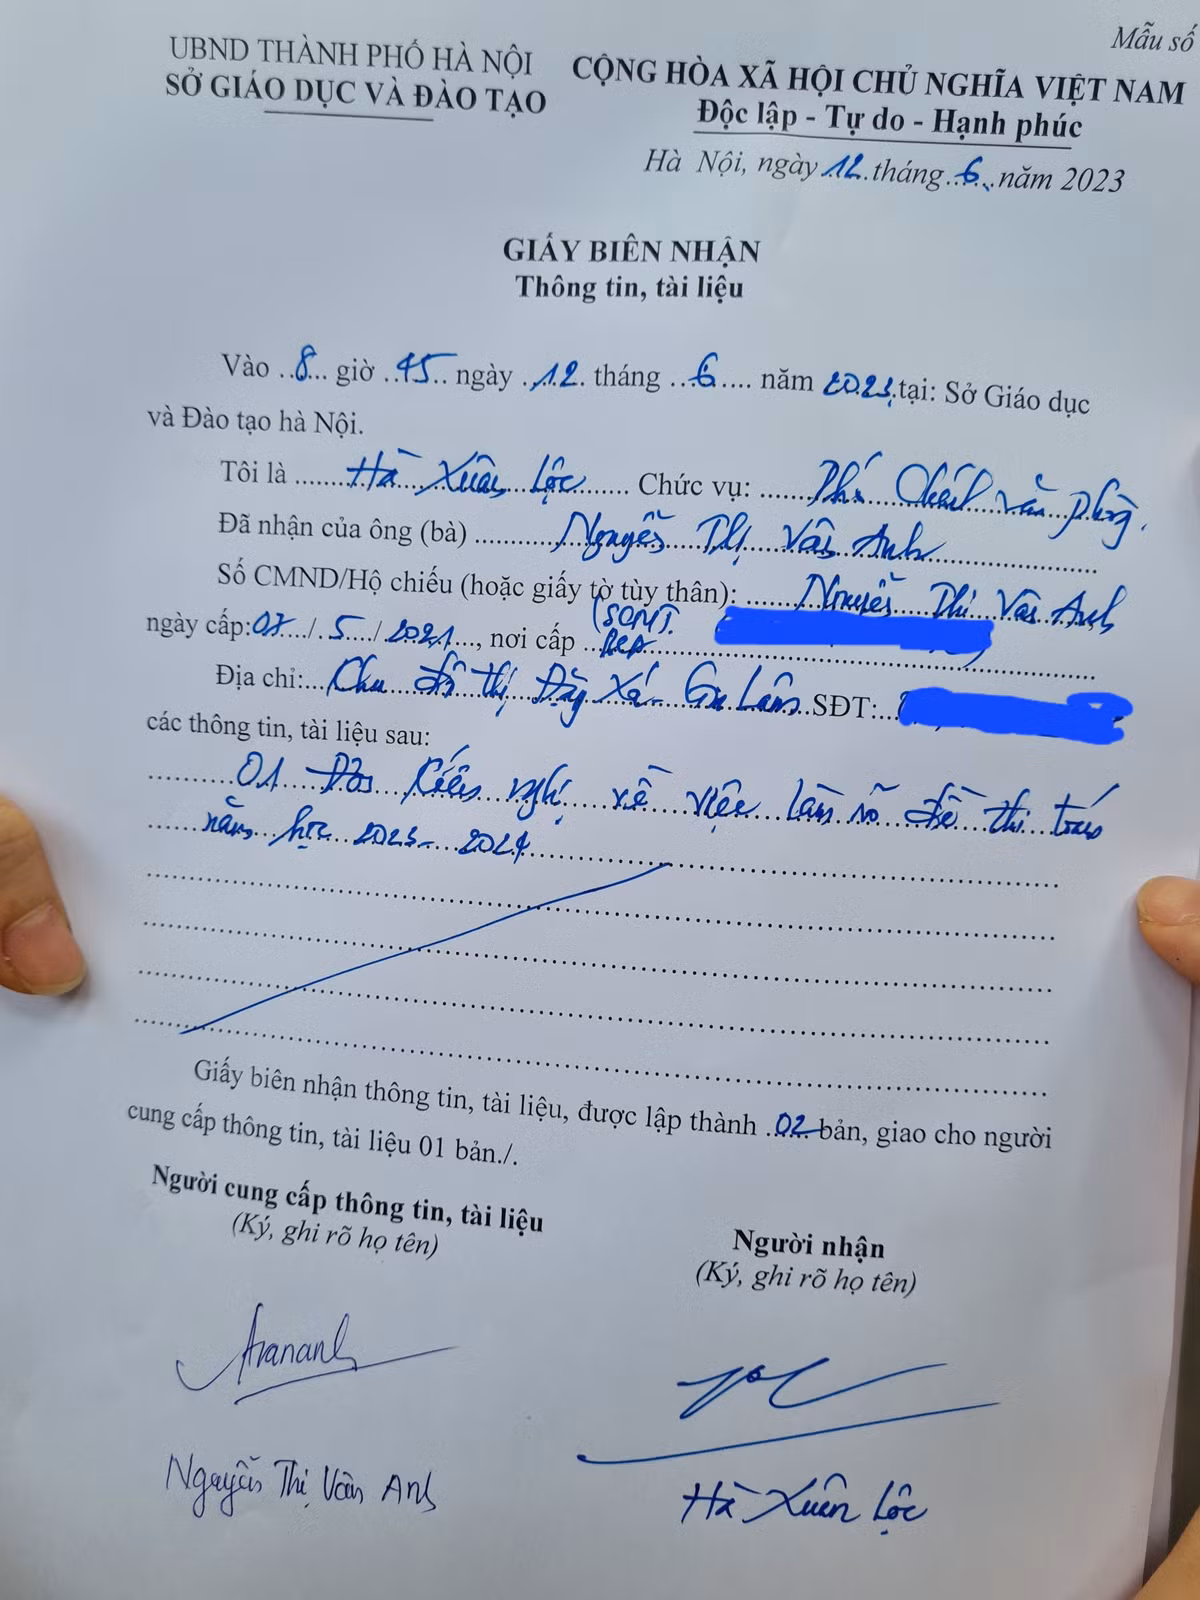 Mẫu số
UBND THÀNH PHỐ HÀ NỘI
SỞ GIÁO DỤC VÀ ĐÀO TẠO
CỘNG HÒA XÃ HỘI CHỦ NGHĨA VIỆT NAM
Độc lập - Tự do - Hạnh phúc
Hà Nội, ngày 12 tháng 6 năm 2023
GIẤY BIÊN NHẬN
Thông tin, tài liệu
Vào 8 giờ 45 ngày 12 tháng 6 năm 2023 tại: Sở Giáo dục
và Đào tạo hà Nội.
Tôi là Hà Xuân Lộc Chức vụ: Phó Chánh văn phòng.
Đã nhận của ông (bà) Nguyễn Thị Vân Anh
Số CMND/Hộ chiếu (hoặc giấy tờ tùy thân): Nguyễn Thị Vân Anh
ngày cấp: 07/5/2021, nơi cấp
Địa chỉ: Khu đô thị Đặng Xá - Gia Lâm SĐT:
các thông tin, tài liệu sau:
01 Đơn kiến nghị về việc làm rõ đề thi
năm học 2023-2024
Giấy biên nhận thông tin, tài liệu, được lập thành 02 bản, giao cho người
cung cấp thông tin, tài liệu 01 bản./.
Người cung cấp thông tin, tài liệu
(Ký, ghi rõ họ tên)
Người nhận
(Ký, ghi rõ họ tên)
Nguyễn Thị Vân Anh
Hà Xuân Lộc